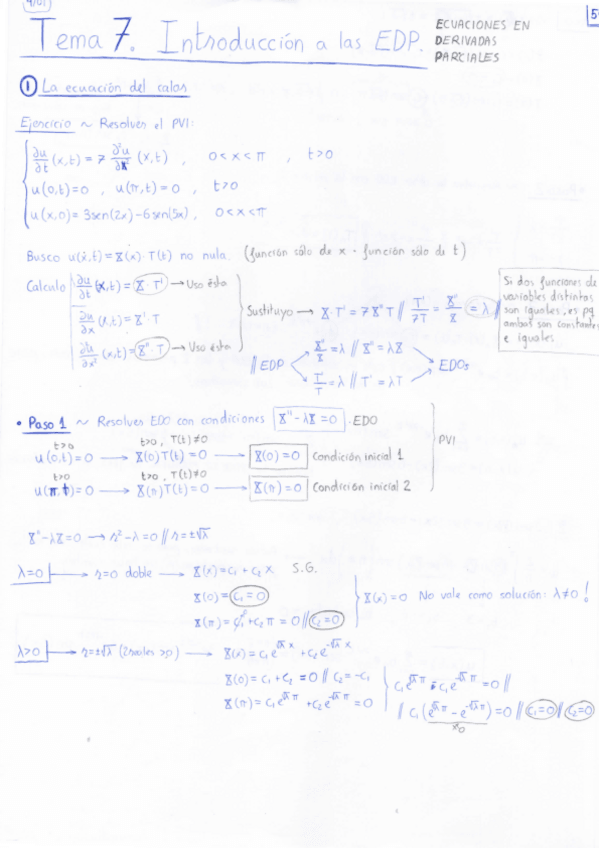 Tema 7. Introducción a las EDP.
ECUACIONES EN
DERIVADAS
PARCIALES
① La ecuación del calor
Ejercicio ~ Resolver el PVI:
∂u/∂t (x,t) = 7 ∂²u/∂x² (x,t) , 0<x<π , t>0
u(0,t)=0 , u(π,t)=0 , t>0
u(x,0)= 3sen(2x)-6sen(5x) , 0<x<π
Busco u(x,t)=X(x)·T(t) no nula. (función sólo de x · función sólo de t)
Calculo ∂u/∂t (x,t) = X·T' → Uso ésta
∂u/∂x (x,t) = X'·T
∂²u/∂x² (x,t) = X''·T → Uso ésta
Sustituyo → X·T' = 7X''T // T'/7T = X''/X = λ //
Si dos funciones de
variables distintas
son iguales, es pq
ambas son constantes
e iguales.
// EDP
X''/X = λ // X'' = λX
T'/T = λ // T' = λT
EDOs
• Paso 1 ~ Resolver EDO con condiciones X''-λX=0 . EDO
t>0 t>0 , T(t)≠0
u(0,t)=0 → X(0)T(t)=0 → X(0)=0 Condición inicial 1
t>0 t>0 , T(t)≠0
u(π,t)=0 → X(π)T(t)=0 → X(π)=0 Condición inicial 2
PVI
X''-λX=0 → r²-λ=0 // r=±√λ
λ=0 → r=0 doble → X(x)=c₁+c₂x S.G.
X(0)=c₁=0
X(π)=c₁+c₂π=0 // c₂=0
X(x)=0 No vale como solución: λ≠0 !
λ>0 → r=±√λ (2 reales >0) → X(x)=c₁e^{√λ x}+c₂e^{-√λ x}
X(0)=c₁+c₂=0 // c₂=-c₁
X(π)=c₁e^{√λ π}+c₂e^{-√λ π}=0
c₁e^{√λ π}-c₁e^{-√λ π}=0 //
// c₁(e^{√λ π}-e^{-√λ π})=0 // c₁=0 // c₂=0